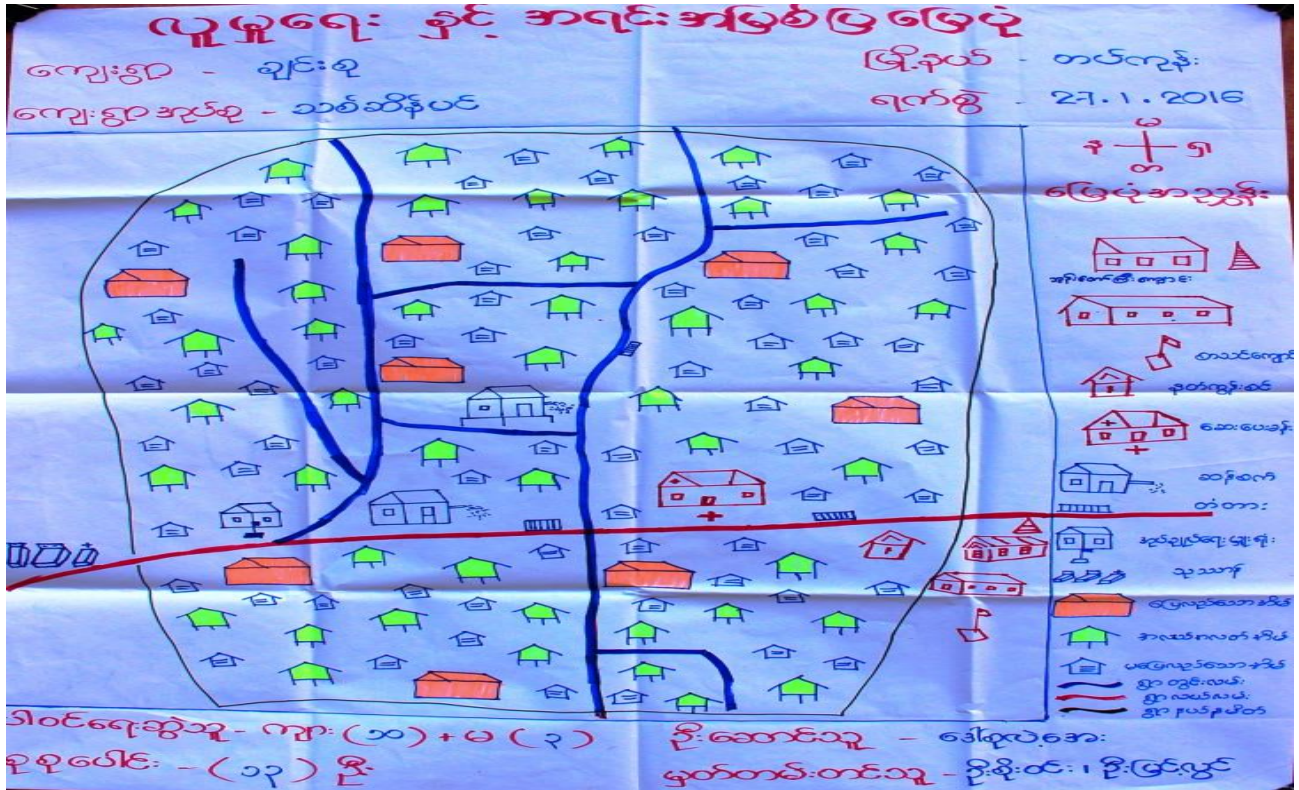 လူမှုရေး နှင့် အရင်းအမြစ်ပြမြေပုံ
ကျေးရွာ - ချင်းစု
မြို့နယ် - တပ်ကုန်း
ကျေးရွာအုပ်စု - သစ်ဆိမ့်ပင်
ရက်စွဲ - 27.1.2016
မ
န ရှ
တ
မြေပုံအညွှန်း
ဘုန်းတော်ကြီးကျောင်း
စာသင်ကျောင်း
နတ်ကွန်းစင်
ဆေးပေးခန်း
ဆန်စက်
တံတား
အုပ်ချုပ်ရေးမှူးရုံး
သုသာန်
ပြေလည်သောအိမ်
အလယ်အလတ်အိမ်
မပြေလည်သောအိမ်
ရွာတွင်းလမ်း
ရွာလယ်လမ်း
ရွာနယ်နမိတ်
ပါဝင်ရေးဆွဲသူ - ကျား (၁၀) + မ (၃)
ဦးဆောင်သူ - ဒေါ်စုလဲ့အေး
စုစုပေါင်း - (၁၃) ဦး
မှတ်တမ်းတင်သူ - ဦးစိုးဝင်း ၊ ဦးမြင့်လွင်